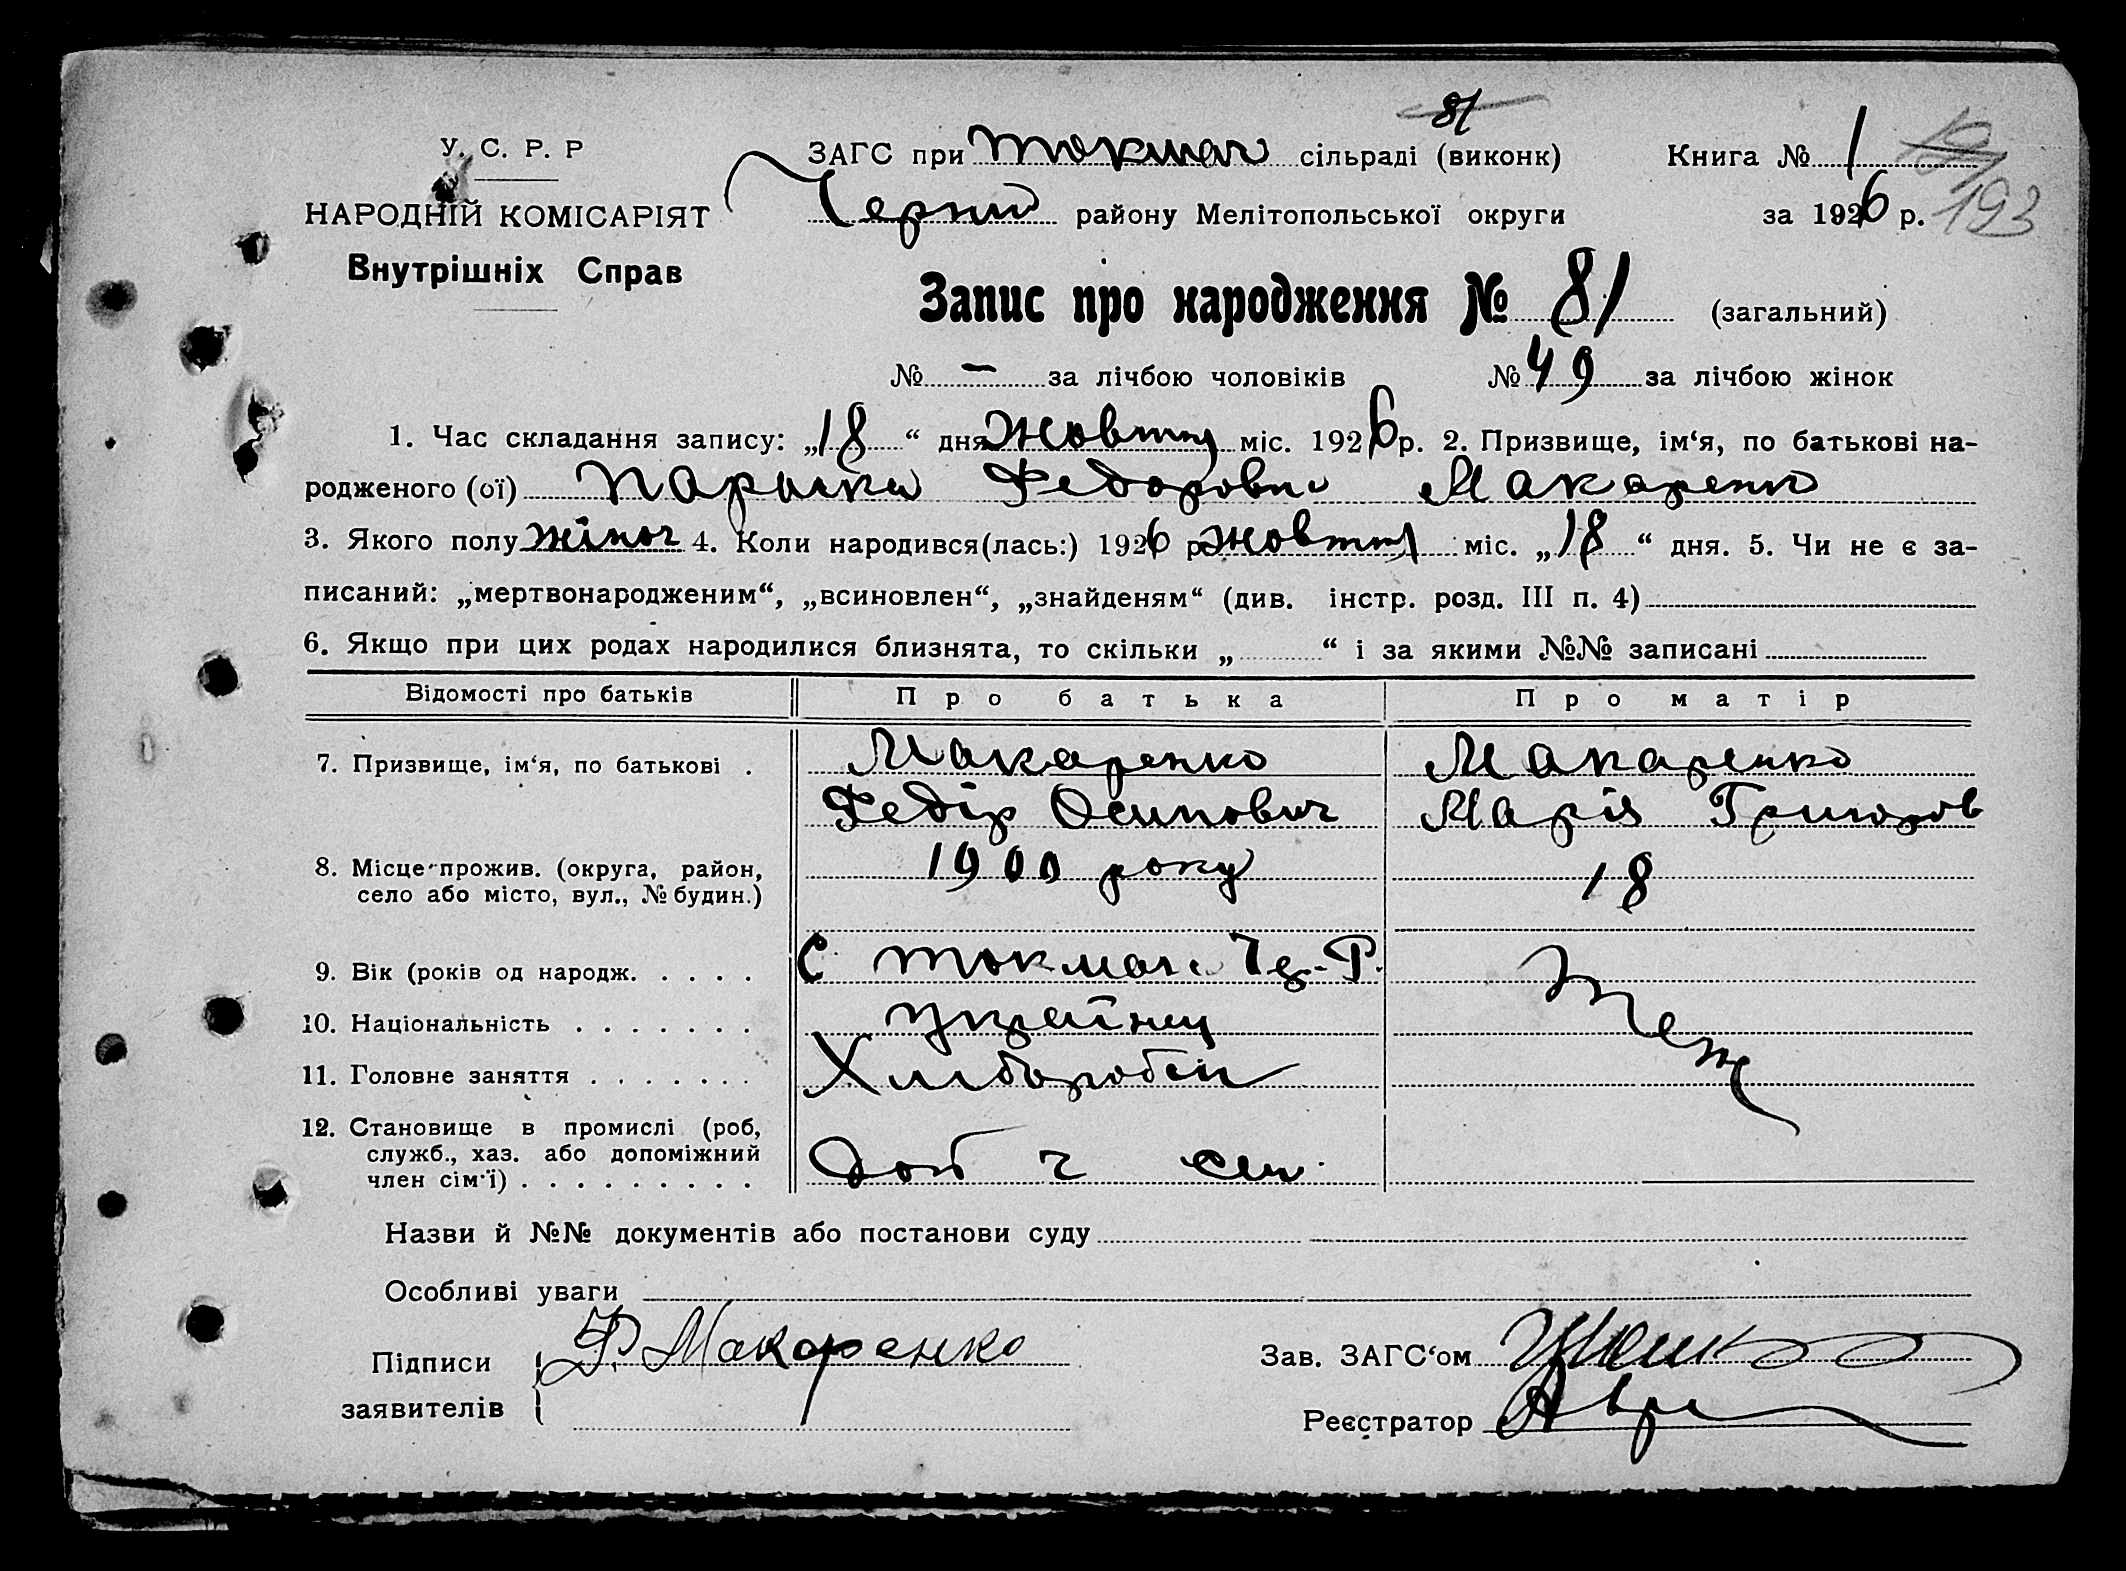 81
У. С. Р. Р
ЗАГС при Токмач сільраді (виконк)
Книга № 1
НАРОДНІЙ КОМІСАРІЯТ
Черниг району Мелітопольської округи
за 1926 р.
193
Внутрішніх Справ
Запис про народження № 81 (загальний)
№ – за лічбою чоловіків № 49 за лічбою жінок
1. Час складання запису: „18“ дня Жовтня міс. 1926 р. 2. Призвище, ім‘я, по батькові на-
родженого (ої) Федоровна Макаренко
3. Якого полу жіноч 4. Коли народився(лась:) 1926 р Жовтня міс. „18“ дня. 5. Чи не є за-
писаний: „мертвонародженим“, „всиновлен“, „знайденям“ (див. інстр. розд. III п. 4)
6. Якщо при цих родах народилися близнята, то скільки „ “ і за якими №№ записані
Відомості про батьків Про батька Про матір
7. Призвище, ім‘я, по батькові . Макаренко Макаренко
Федір Осипович Марія Григоров
8. Місце прожив. (округа, район, 1900 року 18
село або місто, вул., № будин.)
9. Вік (років од народж. . . . . С Токмач Че-Р. Теж
10. Національність . . . . . . . українец
11. Головне заняття . . . . . . . Хлиборобец
12. Становище в промислі (роб,
служб., хаз. або допоміжний
член сім'ї) . . . . . . . . . Доп ч сем.
Назви й №№ документів або постанови суду
Особливі уваги
Підписи Ф. Макаренко Зав. ЗАГС‘ом
заявителів Реєстратор